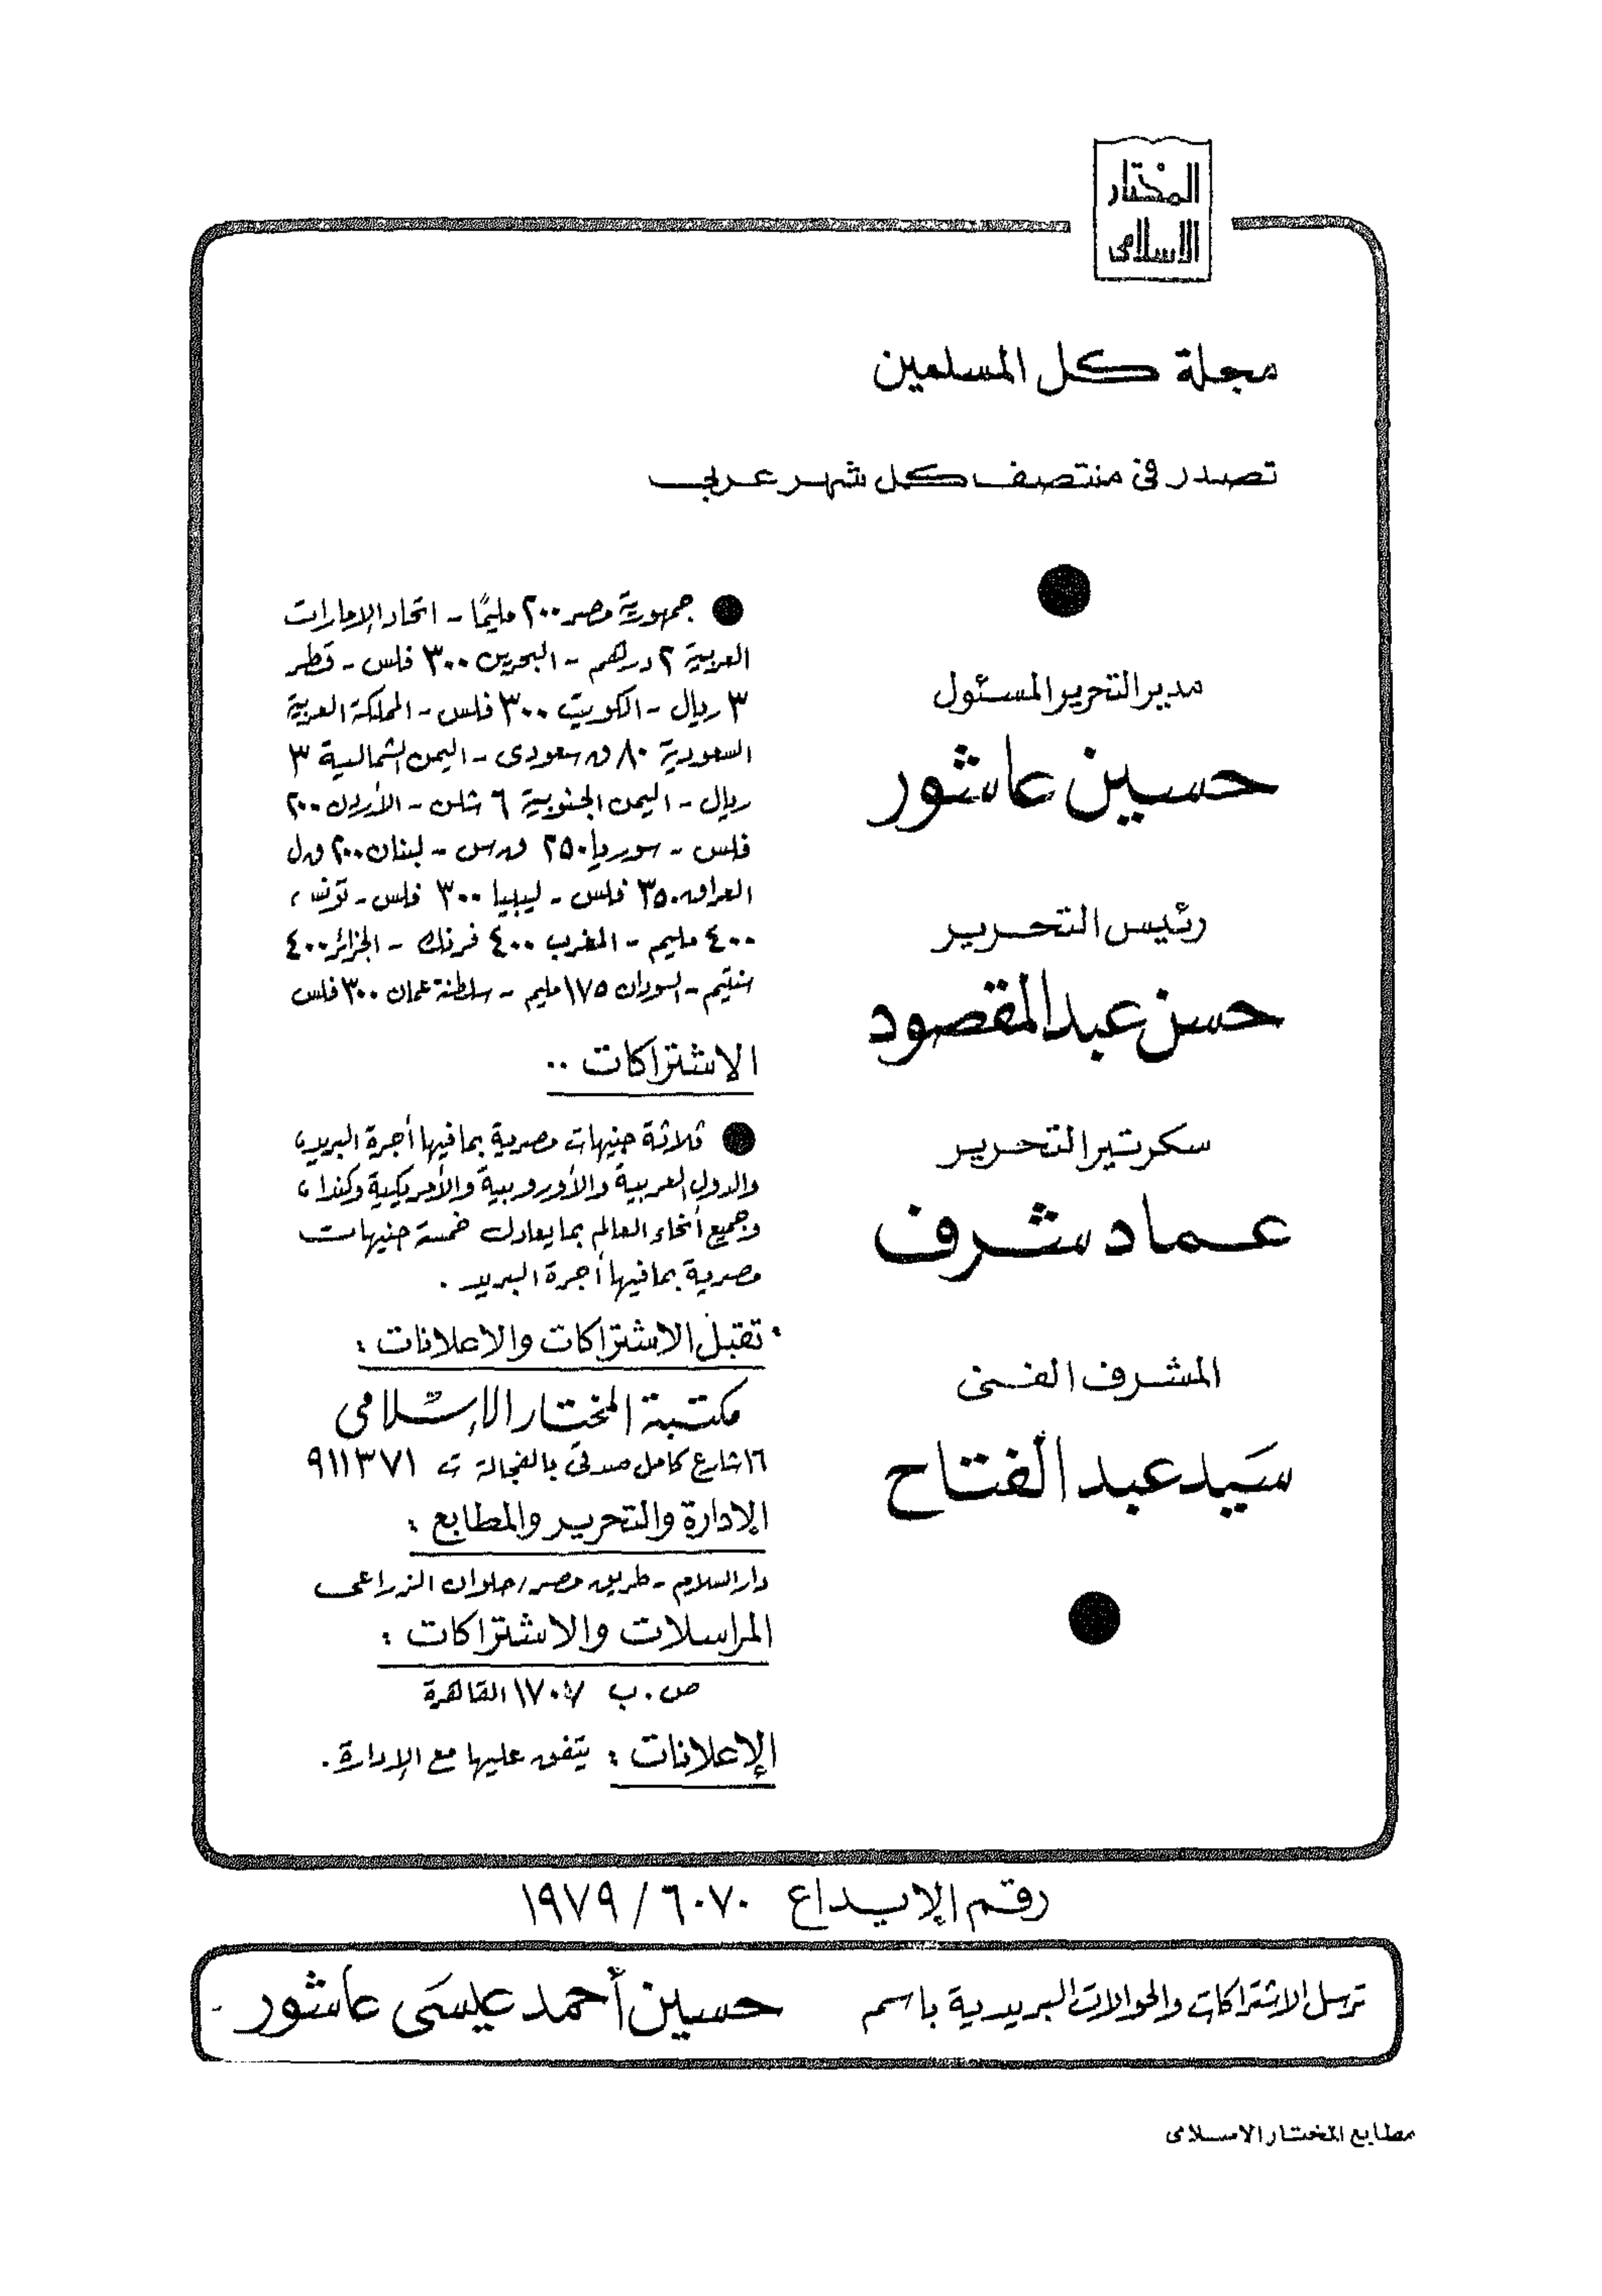 المختار
الاسلامى
مجلة كل المسلمين
تصدر فى منتصف كل شهر عربى
مدير التحرير المسئول
حسين عاشور
رئيس التحرير
حسن عبد المقصود
سكرتير التحرير
عماد شرف
المشرف الفنى
سَيد عبد الفتاح
● جمهورية مصر ٢٠٠ مليمًا - اتحاد الإمارات
العربية ٢ درهم - البحرين ٣٠٠ فلس - قطر
٣ ريال - الكويت ٣٠٠ فلس - المملكة العربية
السعودية ٨٠ ق سعودى - اليمن الشمالية ٣
ريال - اليمن الجنوبية ٦ شلن - الأردن ٢٠٠
فلس - سوريا ٢٥٠ ق س - لبنان ٢٠٠ ق ل
العراق ٣٥٠ فلس - ليبيا ٣٠٠ فلس - تونس،
٤٠٠ مليم - المغرب ٤٠٠ فرنك - الجزائر ٤٠٠
سنتيم - السودان ١٧٥ مليم - سلطنة عمان ٣٠٠ فلس
الاشتراكات ..
● ثلاثة جنيهات مصرية بما فيها أجرة البريد،
والدول العربية والأوروبية والأمريكية وكندا،
وجميع أنحاء العالم بما يعادل خمسة جنيهات
مصرية بما فيها أجرة البريد .
• تقبل الاشتراكات والاعلانات :
مكتبة المختار الإسلامى
١٦ شارع كامل صدقى بالفجالة ت ٩١١٣٧١
الإدارة والتحرير والمطابع :
دار السلام - طريق مصر/حلوان الزراعى
المراسلات والاشتراكات :
ص . ب ١٧٠٧ القاهرة
الإعلانات : يتفق عليها مع الإدارة .
رقم الإيداع ٦٠٧٠ / ١٩٧٩
ترسل الاشتراكات والحوالات البريدية باسم حسين أحمد عيسَى عاشور -
مطابع المختار الاسلامى